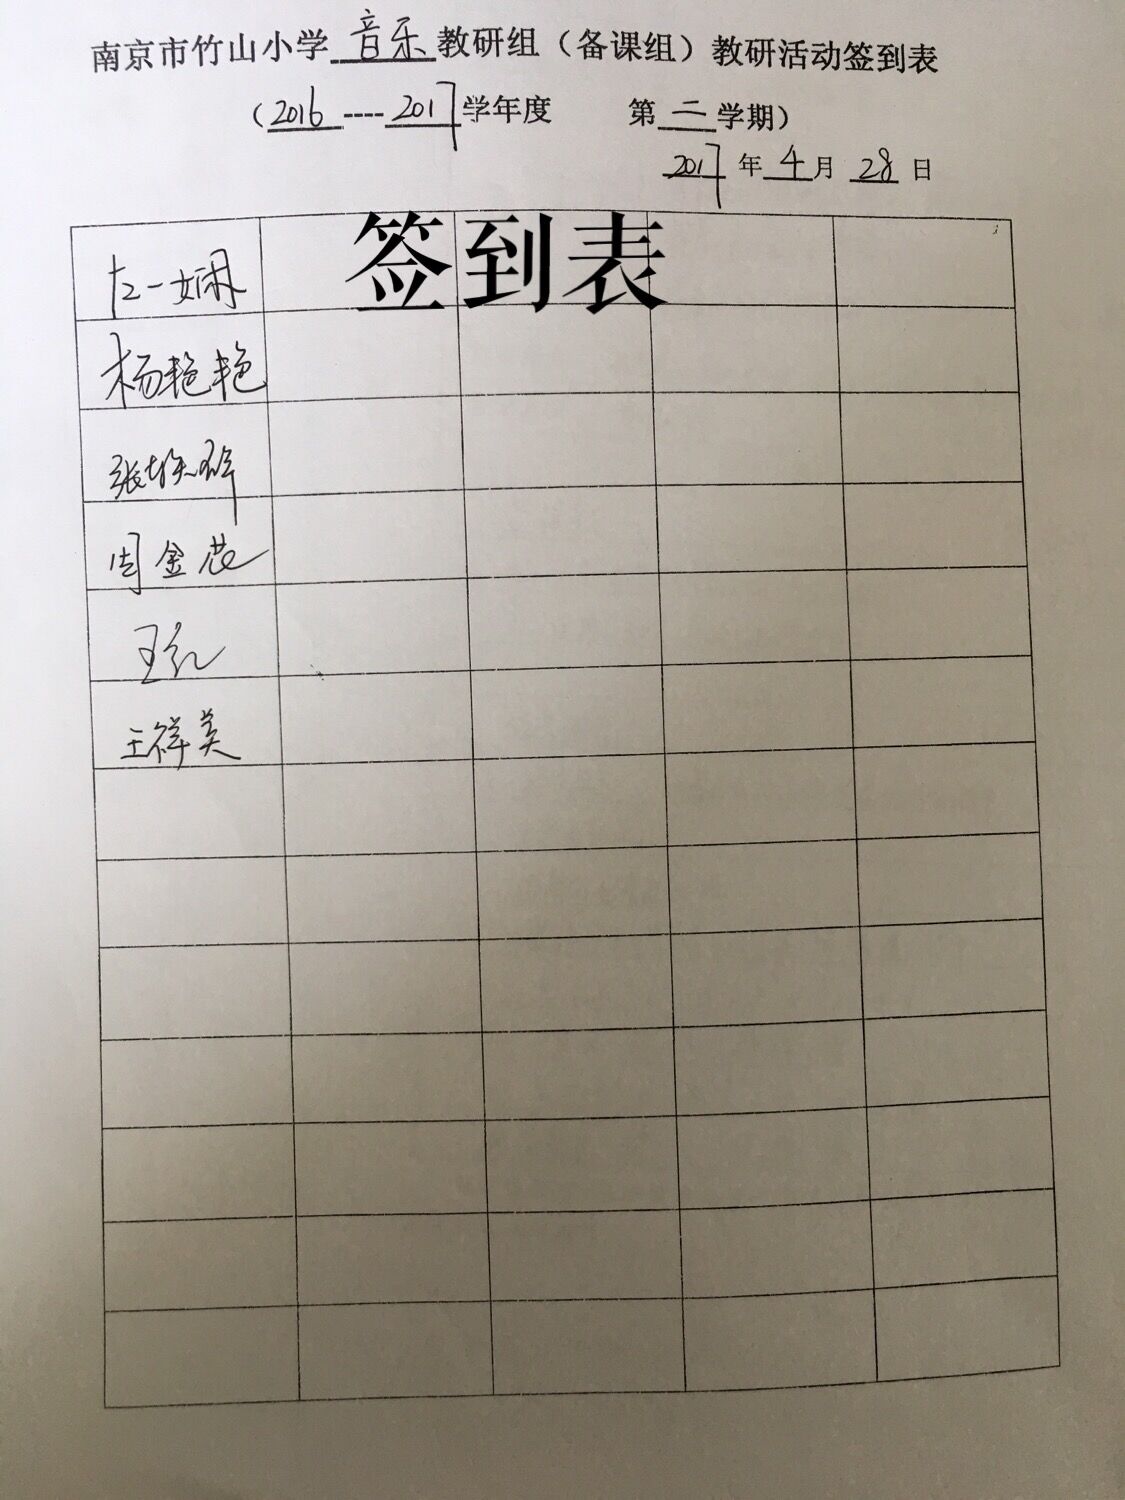 南京市竹山小学 音乐 教研组（备课组）教研活动签到表
（2016----2017学年度 第二学期）
2017年4月28日
签到表
杨艳艳
周金花
王红
王祥美